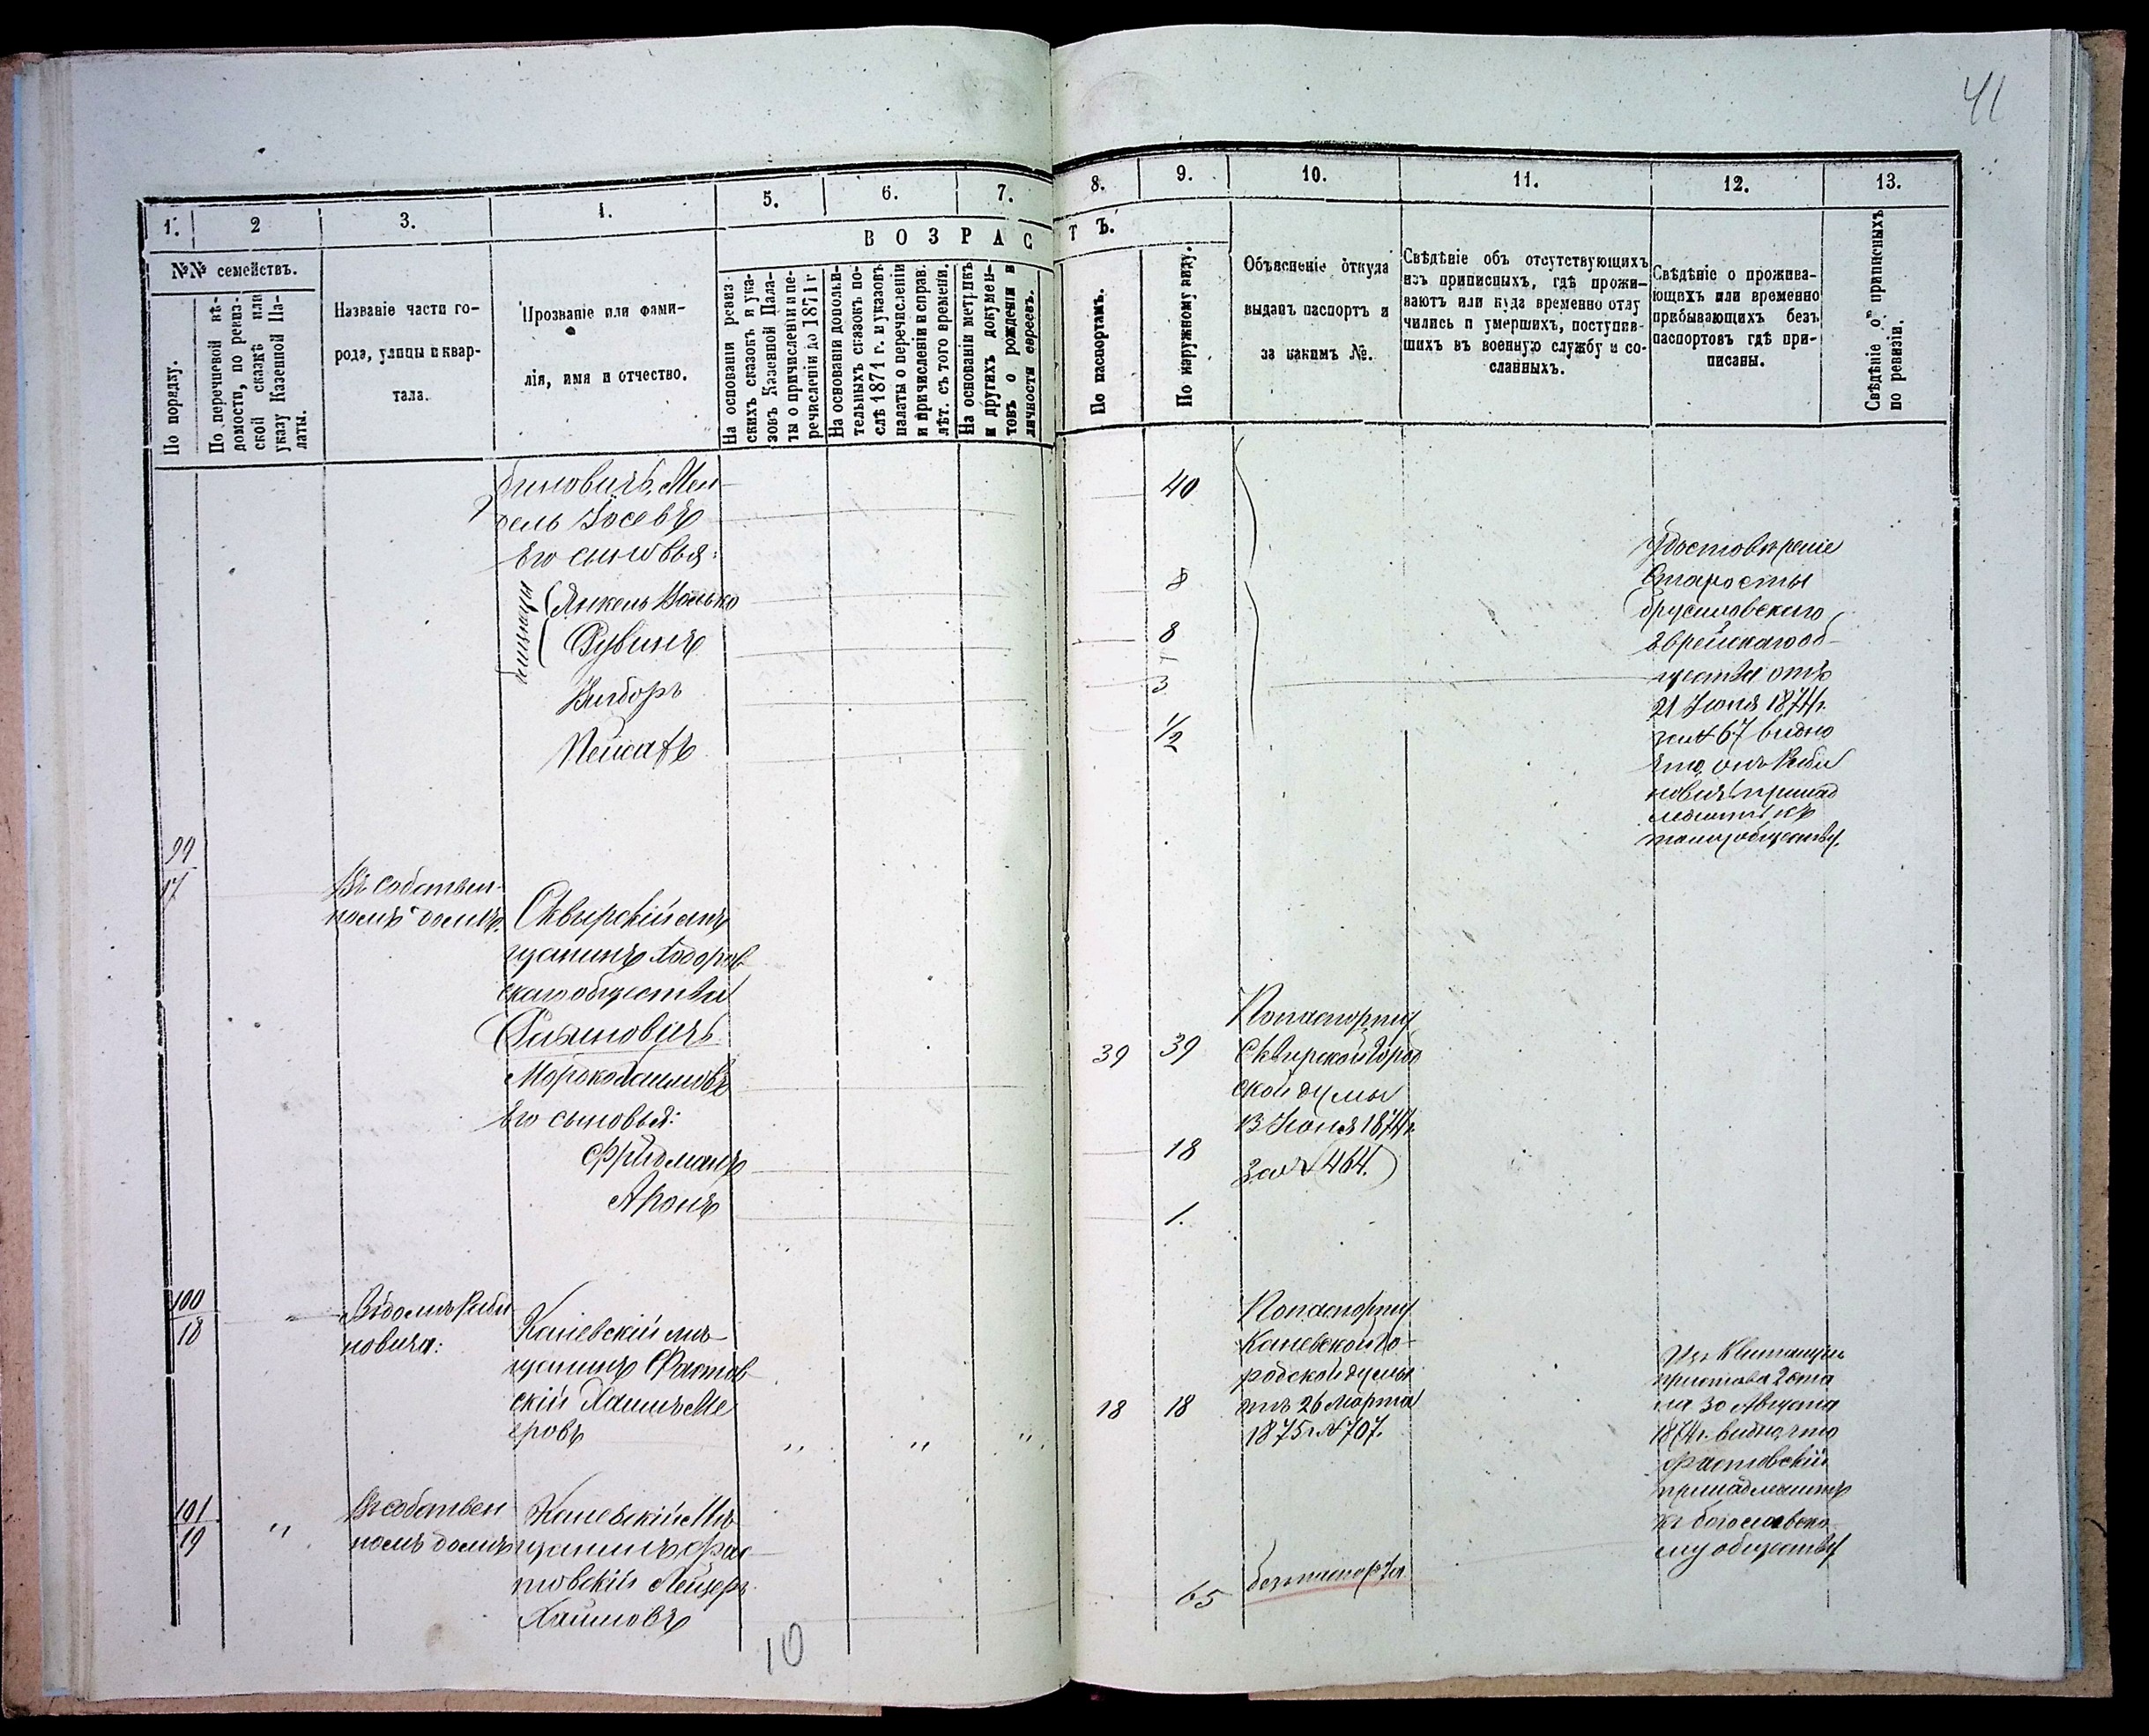 41
1.
2
3.
4.
5.
6.
7.
8.
9.
10.
11.
12.
13.
№№ семействъ.
ВОЗРАСТЪ.
По порядку.
По перечневой вѣ-
домости, по ревиз-
ской сказкѣ или
указу Казенной Па-
латы.
Названіе части го-
рода, улицы и квар-
тала.
Прозваніе или фами-
лія, имя и отчество.
На основаніи ревиз-
скихъ сказокъ и ука-
зовъ Казенной Пала-
ты о причисленіи и пе-
речисленіи до 1871 г
На основаніи дополни-
тельныхъ сказокъ по-
слѣ 1871 г. и указовъ
палаты о перечисленіи
и причисленіи и справ.
лѣт. съ того времени.
На основаніи метрикъ
и другихъ докумен-
товъ о рожденіи и
личности евреевъ.
По паспортамъ.
По наружному виду.
Объясненіе откуда
выданъ паспортъ и
за какимъ №.
Свѣдѣніе объ отсутствующихъ
изъ приписныхъ, гдѣ прожи-
ваютъ или куда временно отлу
чились и умершихъ, поступив-
шихъ въ военную службу и со-
сланныхъ.
Свѣдѣніе о прожива-
ющихъ или временно
пребывающихъ безъ
паспортовъ гдѣ при-
писаны.
Свѣдѣніе о приписныхъ
по ревизіи.
биновичъ, Мен-
дель Іосевъ
40
Его сыновья:
близнецы
Янкель Волько
8
Рувинъ
8
3
Пейсахъ
1/2
Удостовѣреніе
Старосты
Брусиловскаго
Еврейскаго об-
щества отъ
21 Іюня 1874 г.
за № 67 видно
что онъ Раби
новичъ принад
лежитъ къ
тому обществу.
99
17
Въ собствен-
номъ домѣ.
Сквирскій мѣ
щанинъ Ходоров
скаго общества
39
39
По паспорту
Сквирской Город
ской думы
13 Іюня 1874 г.
за № 464.
Его сыновья:
Фридманъ
18
Аронъ
1.
100
18
Въ домѣ Раби
новича:
Каневскій мѣ-
щанинъ Фастов
скій Хаимъ Ме
еровъ
18
18
По паспорту
Каневской Го-
родской думы
отъ 26 Марта
1875 г. № 707.
Изъ Квитанціи
пристава 2 ста
на 30 Августа
1874 г. видно, что
Фастовскій
принадлежитъ
къ богославско-
му обществу
101
19
Въ собствен
номъ домѣ
Каневскій Мѣ
щанинъ Фас-
товскій Лейзеръ
Хаимовъ
65
безъ паспорта
10